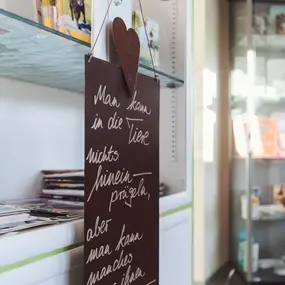 Man kann
in die Tiere
nichts
hinein-
prägeln,
aber man kann
manches
ihnen